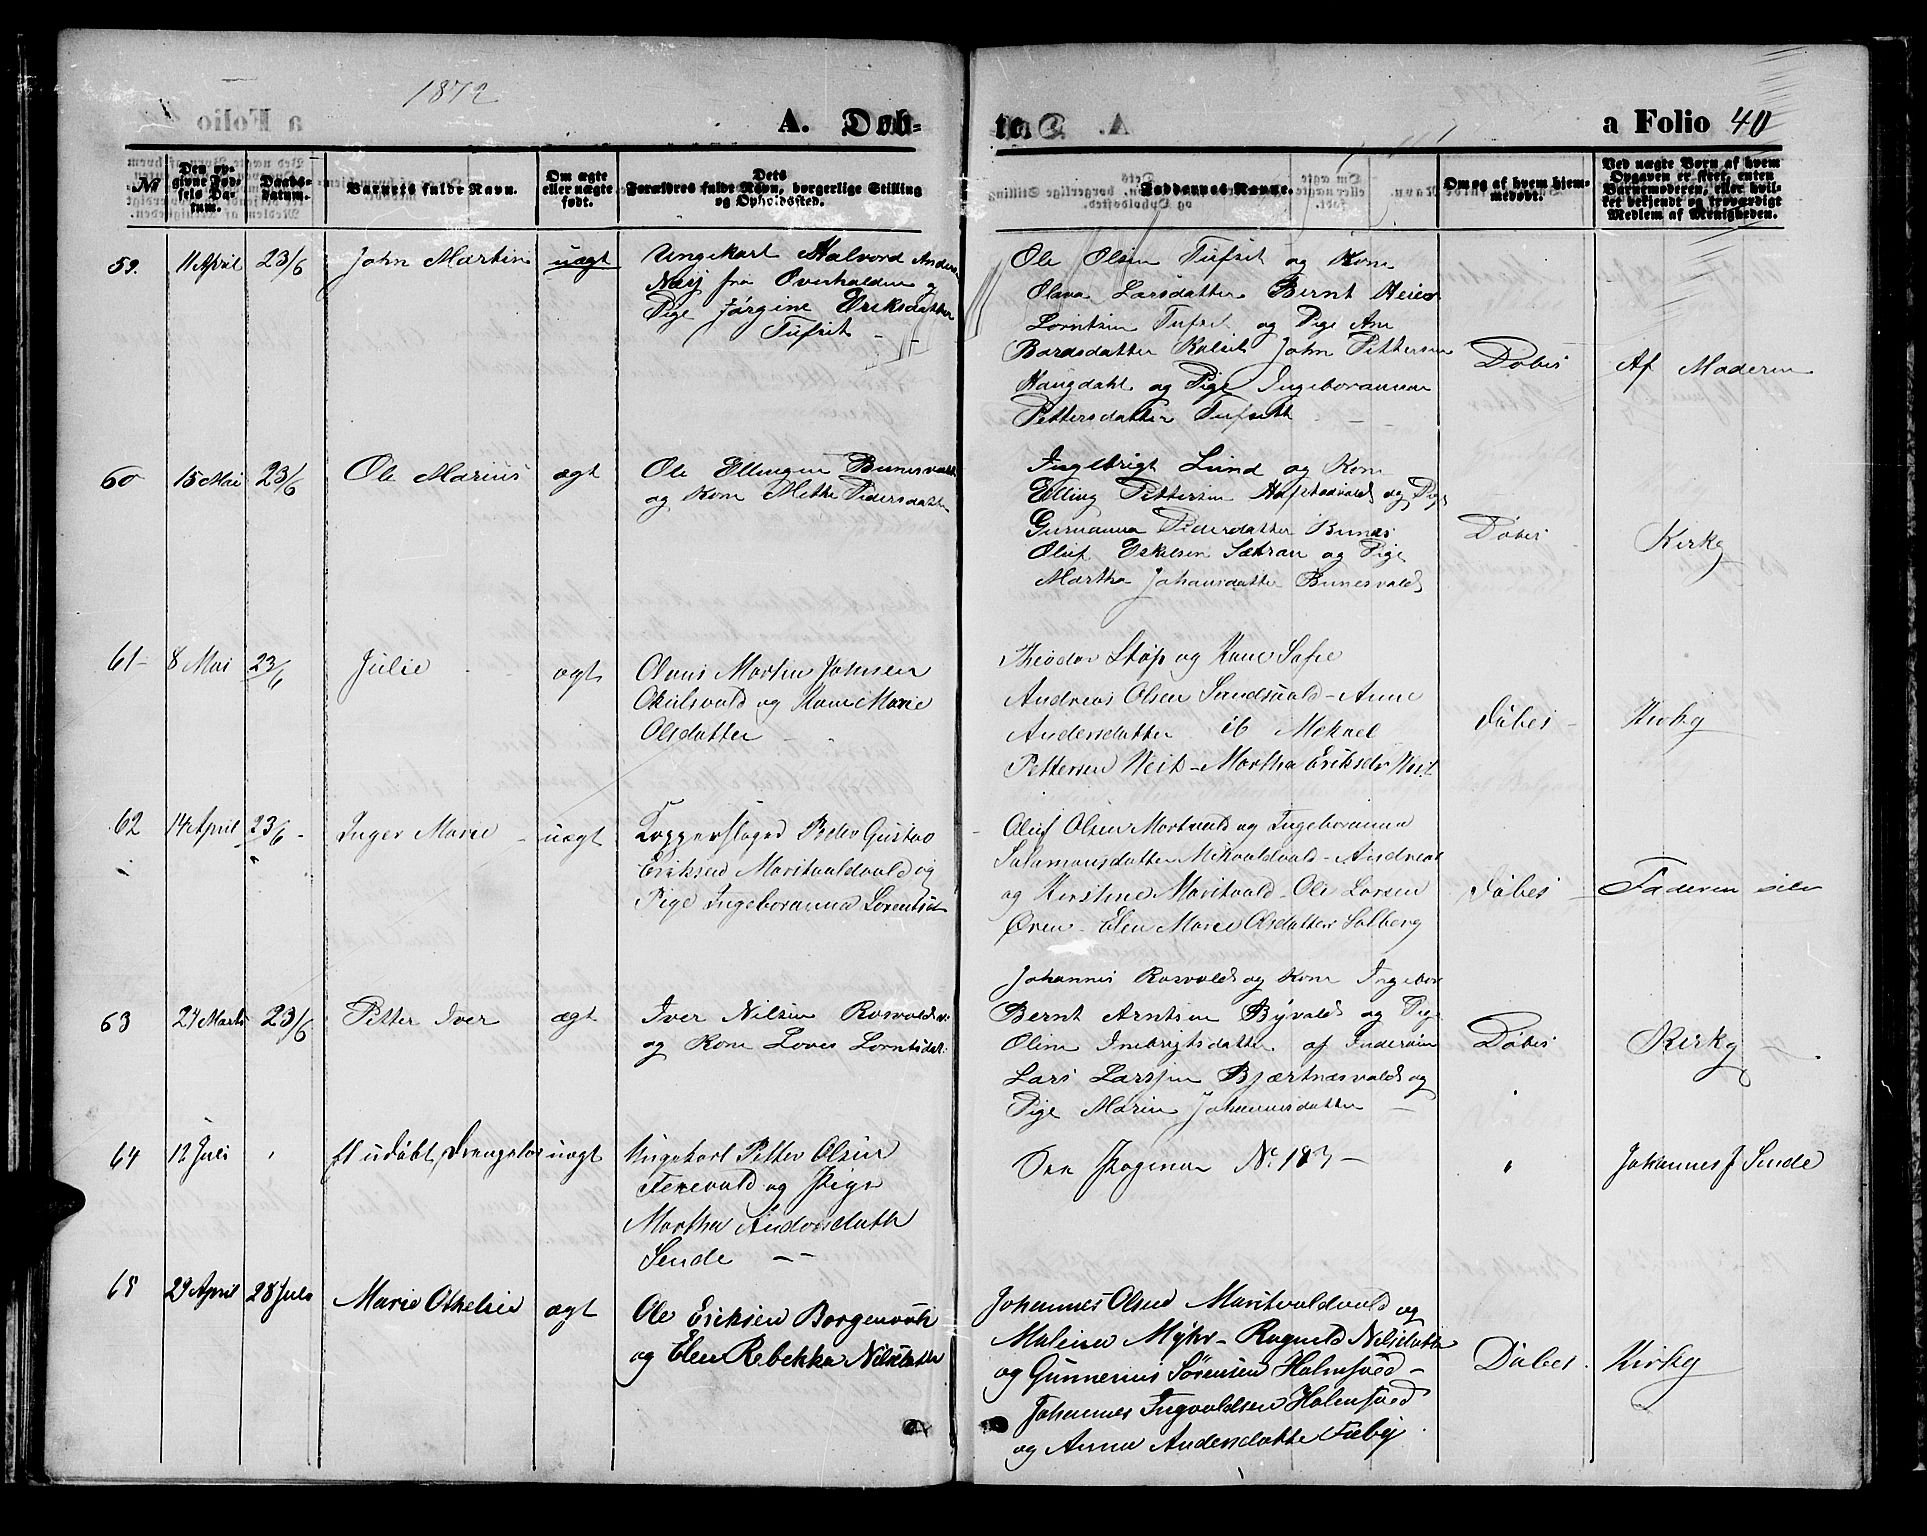 1872
A. Døb-
te.
a Folio 40
No
Den op-
givne Fød-
sels Da-
tum.
Daabs-
Datum.
Barnets fulde Navn.
Om ægte
eller uægte
født.
Dets
Forældres fulde Navn, borgerlige Stilling
og Opholdssted.
Faddernes Navne.
Om og af hvem hjem-
medøbt.
Ved uægte Børn af hvem
Opgaven er skeet, enten
Barnemoderen, eller hvil-
ket bekjendt og troværdigt
Medlem af Menigheden.
59. 11 April 23/6 John Martin uægt
Ungekarl Halvord Anders
Næsj fra Overhalden og
Pige Jørgine Eriksdatter
Tufsit
Ole Olsen Tufsit og Kone
Olava Larsdatter Bernt Heier
Lorntsen Tufsit og Pige Ane
Bardsdatter Kolsit John Pettersen
Haugdahl og Pige Ingeboranna
Pettersdatter Tufsitt
Døbes
Af Moderen
60 15 Mai 23/6 Ole Marius ægt
Ole Ellingsen Bunesvald
og Kone Mette Pedersdatter
Ingebrigt Lund og Kone
Elling Pettersen og Pige
Gurunanna Pedersdatter Bunes
Oluf Eskelsen Sætran og Pige
Martha Johansdatter Bunesvald
Døbes
Kirke
61 8 Mai 23/6 Julie ægt
Claus Martin Johnsen
og Kone Marie
Olsdatter
Theodor Støp og Kone Sofie
Andreas Olsen Sundsvald - Anne
Andersdatter ib Mekael
Pettersen Weit - Martha Eriksdr Weit
Døbes
Kirke
62 14 April 23/6 - Inger Marie uægt
Kopperslager Peder Gustav
Eriksen Maritvaldvald og
Pige Ingeboranna Lorentsdt
Oluf Olsen Mortvald og Ingeboranna
Salamonsdatter Mikvaldvald - Andreas
og Kirstine Maritvald - Ole Larsen
Øren - Elen Marie Olsdatter Solberg
Døbes
Faderen selv
63 24 Marts 23/6 Petter Iver ægt
Iver Nilsen Rosvold
og Kone Lovis Lorntsdat.
Johannes Rosvold og Kone Ingebor
Bernt Arntsen Byvald og Pige
Oline Inebrigtsdatter af Inderøen
Lars Larssen Bjærtnæsvald og
Pige Maren Johannesdatter
Døbes
Kirke
64 12 Juli fl udøbt Drengebar uægt
Ungekarl Petter Olsen
og Pige
Martha Andersdatter
Sende
See Pagena No 183 -
Johannes J Sende
65 29 April 28 Juli Marie Othelie ægt
Ole Eriksen Borgenvold
og Elen Rebekka Nilsdatter
Johannes Olsen Maritvaldvald og
Malena Myhr - Ragnild Nilsdatter
og Gunnerius Sørensen Holmsved -
Johannes Ingvaldsen Holmsved
og Anna Andersdatter Fæby
Døbes
Kirke